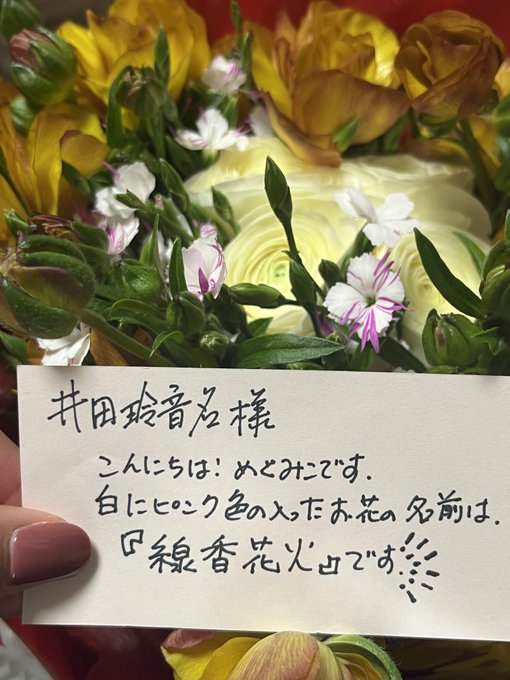 井田玲音名様
こんにちは！めとみこです.
白にピンク色の入ったお花の名前は.
『線香花火』です